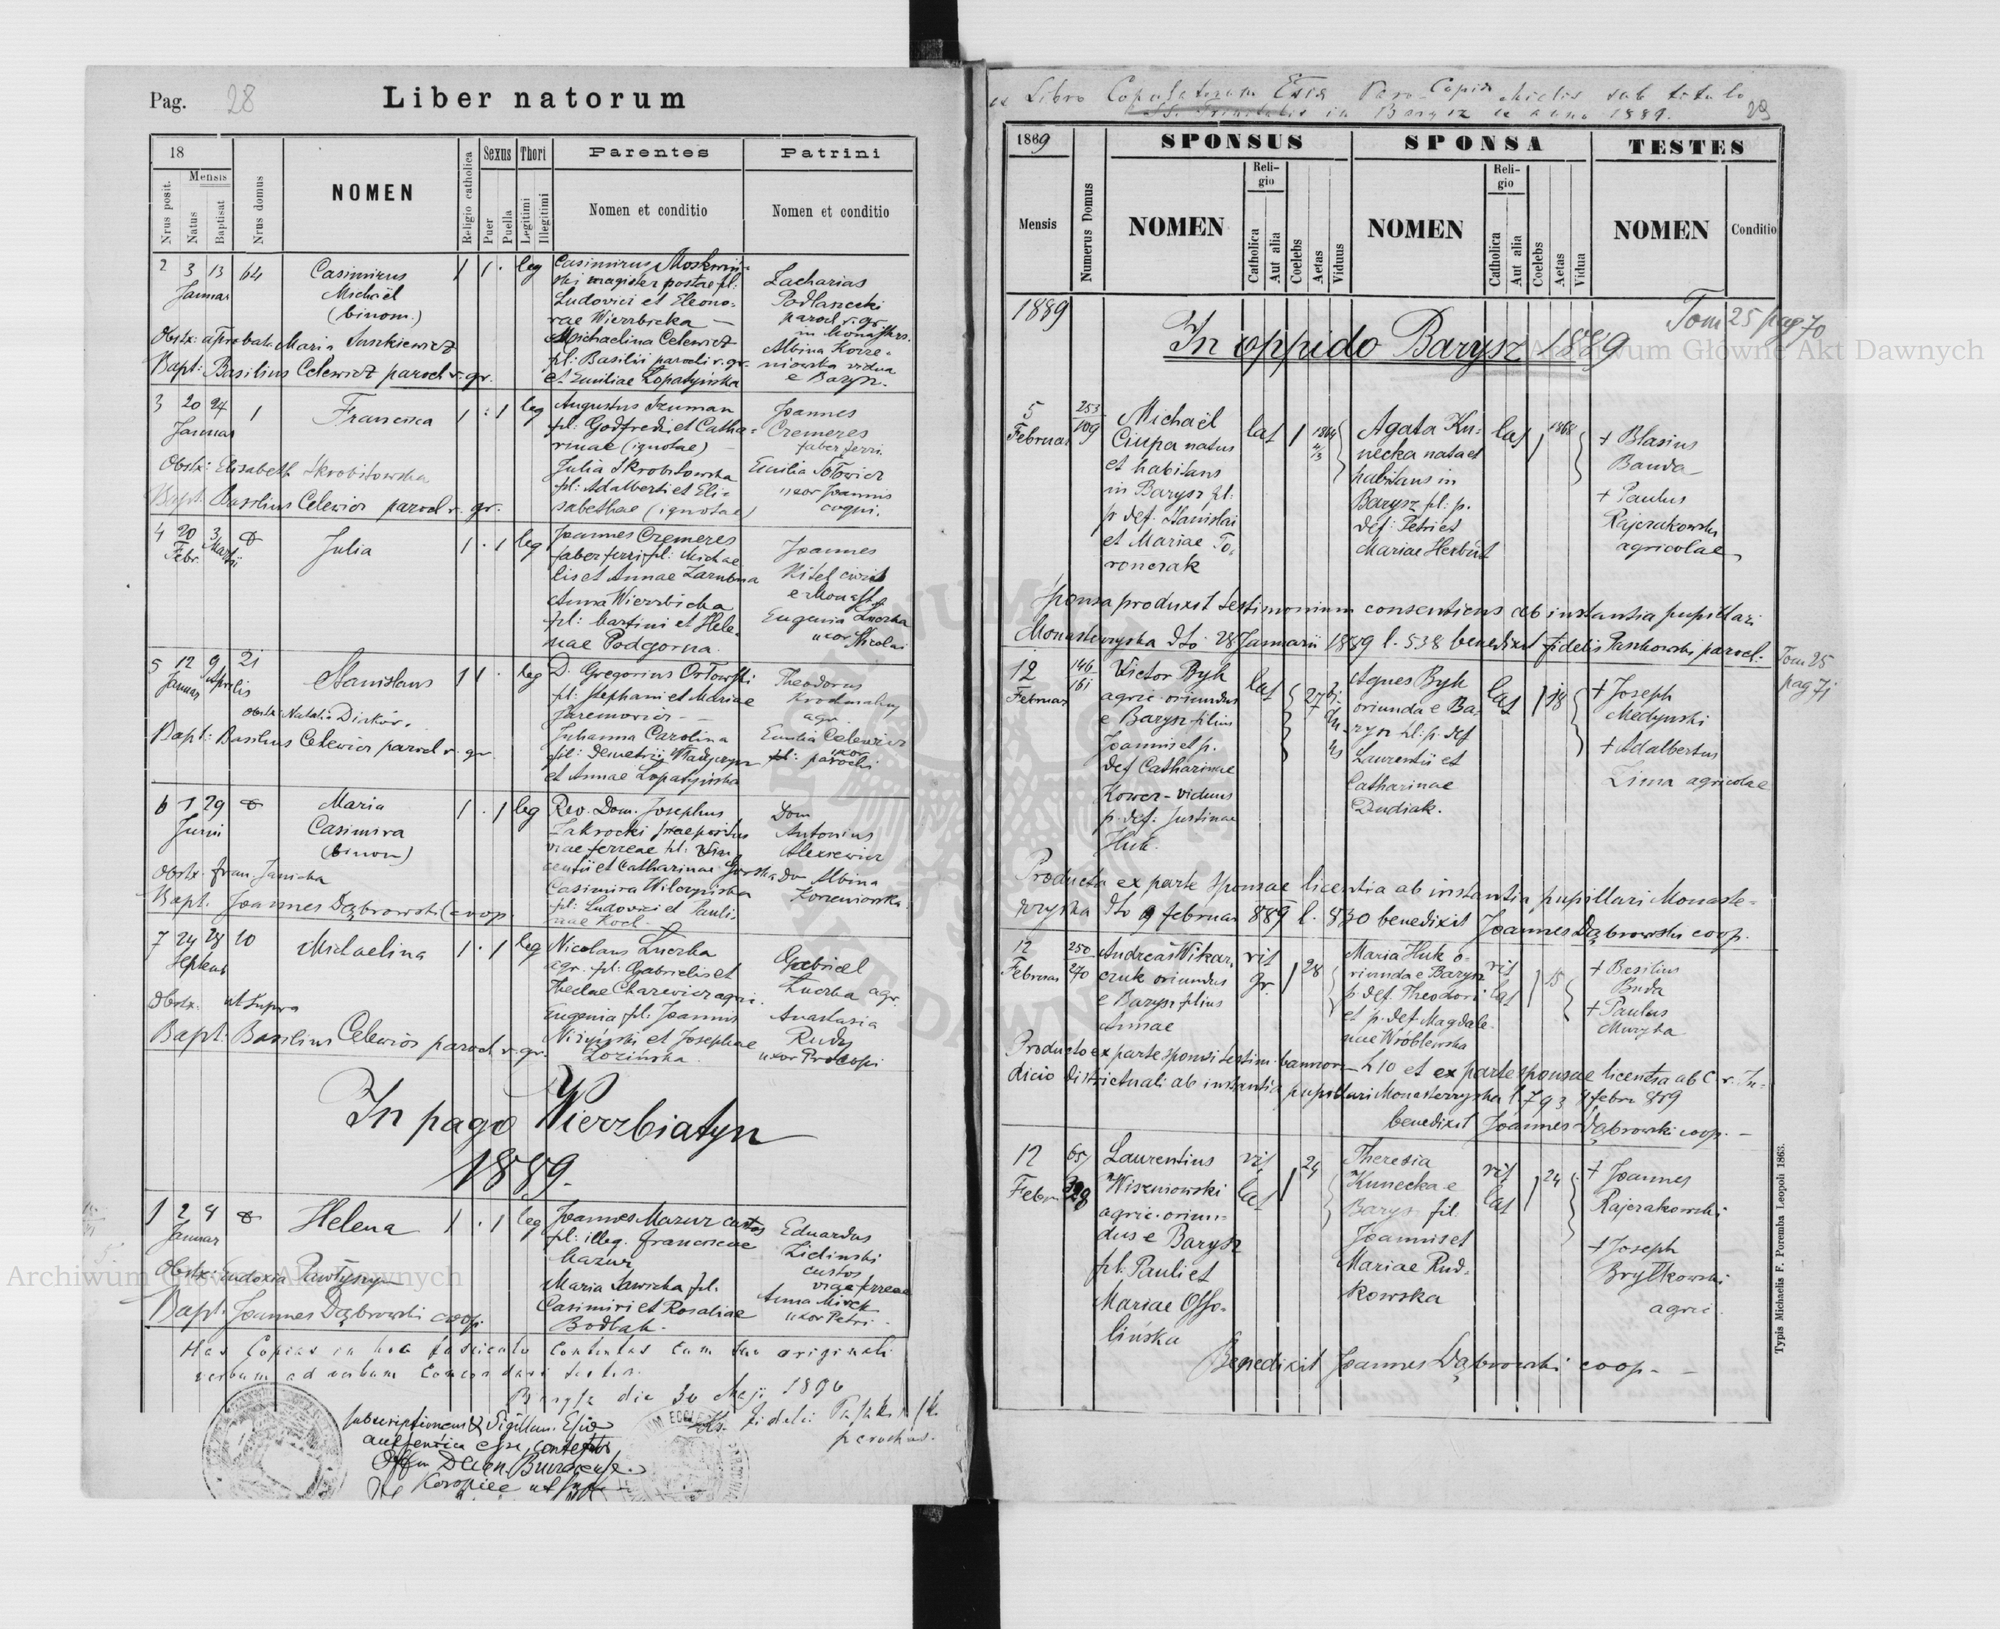 Pag. 28
Liber natorum
18
Mensis
Nrus posit.
Natus
Baptisat
Nrus domus
NOMEN
Religio catholica
Sexus
Puer
Puella
Thori
Legitimi
Illegitimi
Parentes
Nomen et conditio
Patrini
Nomen et conditio
2 3 13 64
Januar
Casimirus
Michaël
(binom.)
1 1 . leg
Casimirus Moskwiń-
ski magister postae fil:
Ludovici et Eleono-
rae Wierzbicka —
Michaelina Celewicz
fil: Basilii parochi r. gr.
et Emiliae Łopatyńska
Zacharias
paroch r. gr.
in Monasters.
Albina Korze-
niowska vidua
e Barysz.
Obstx: aprobata Maria Jaszkiewicz
Bapt: Basilius Celewicz paroch r. gr.
3 20 24 1
Januar
Francisca
1 . 1 leg
Augustus Szuman
fil: Godfredi et Catha-
rinae (ignotae)
Julia Skrobitowska
fil: Adalberti et Eli-
sabethae (ignotae)
Joannes
Cremeres
faber ferri
Emilia
uxor Joannis
coqui.
Obstx: Elisabeth Skrobitowska
Bapt. Basilius Celewicz paroch r. gr.
4 20 3
Febr. Martii
Julia
1 . 1 leg
Joannes Cremeres
faber ferri fil: Michae
lis et Annae Zarubna
Anna Wierzbicka
fil: Martini et Hele-
nae Podgorna.
Joannes
Kitel
e Monast.
Eugenia Łuczka
uxor Nicolai
5 12 9 21
Januar Aprilis
Stanislaus
1 1 . leg
D. Gregorius Orłowski
fil: Stephani et Mariae
Jaremowicz —
Julianna Carolina
fil: Demetrii
et Annae Łopatyńska
Theodorus
agr.
Emilia Celewicz
uxor
parochi
Obstx: Natalia
Bapt: Basilius Celewicz paroch r. gr.
6 1 29
Junii
Maria
Casimira
(binom)
1 . 1 leg
Rev. Dom. Josephus
Zakrocki praepositus
viae ferreae fil: Vin
centii et Catharinae Gorska
Casimira Wilczyńska
fil: Ludovici et Pauli-
nae Koch
Dom
Antonius
Alexiewicz
Dna Albina
Korzeniowska
Obstx. Fran. Janicka
Bapt. Joannes Dąbrowski coop.
7 24 28 10
Septemb
Michaelina
1 . 1 leg
Nicolaus Łuczka
agr. fil: Gabrielis et
Theclae Charewicz agri.
Eugenia fil: Joannis
Niżyński et Josephae
Łozińska.
Gabriel
Łuczka agr
Anastasia
Rudy
uxor Procopi
Obstx. ut supra
Bapt: Basilius Celewicz paroch r. gr.
In pago Wierzbiatyn
1889.
1 2 4
Januar
Helena
1 . 1 leg
Joannes Mazur custos
fil: illeg. Franciscae
Mazur
Maria Sawicka fil:
Casimiri et Rosaliae
Bodlak.
Eduardus
Zieliński
custos
viae ferreae
Anna Mirek
uxor Petri
Obstx: Eudoxia Pawłyszyn
Bapt: Joannes Dąbrowski coop.
Has Copias in hoc fasciculo contentas cum suo originali
verbum ad verbum concordari testor.
Barysz die 30 Maji 1890
Ks. Fidelis Paszkowski
parochus.
subscriptionem & Sigillum
authentica esse, contestor
Off Decan. Buczacense
Koropiec ut supra
ex Libro Copulatorum Eccl. Parochialis sub titulo
Copia
SS. Trinitatis in Barysz de anno 1889.
29
1869
Mensis
Numerus Domus
SPONSUS
NOMEN
Reli-
gio
Catholica
Aut alia
Coelebs
Aetas
Viduus
SPONSA
NOMEN
Reli-
gio
Catholica
Aut alia
Coelebs
Aetas
Vidua
TESTES
NOMEN
Conditio
1889
Tom 25 pag 70
In oppido Barysz 1889
Archiwum Główne Akt Dawnych
5
Februar
253
109
Michaël
Ciupa natus
et habitans
in Barysz fil:
p def. Stanislai
et Mariae To-
ronczak
lat 1 1864
4/3
Agata Ku-
necka nata et
habitans in
Barysz fil: p.
def: Petri et
Mariae Herbut
lat 1 1868
+ Blasius
Banda —
+ Paulus
Rajczakowski
agricolae
Sponsa produxit testimonium consentiens ab instantia pupillari
Monasterzyska dto 28 Januarii 1889 l. 538 benedixit Fidelis Paszkowski paroch.
Tom 25
pag 71
12
Februar
146
161
Victor Byk
agric. oriundus
e Barysz filius
Joannis et p.
def Catharinae
Kower - viduus
p. def: Justinae
Huk.
lat 27
Agnes Byk
oriunda e Ba-
rysz fil: p. def
Laurentii et
Catharinae
Dudiak.
lat 1 18
+ Joseph
Medynski
+ Adalbertus
Zima agricolae
Producta ex parte sponsae licentia ab instantia pupillari Monaste-
rzyska dto 9 februar 889 l. 830 benedixit Joannes Dąbrowski coop.
12
Februar
250
270
Andreas Wikar-
czuk oriundus
e Barysz filius
Annae
rit
gr. 1 28
Maria Huk o-
riunda e Barysz
p def. Theodori
et p. def. Magdale-
nae Wróblewska
rit
lat 1 15
+ Basilius
Buda
+ Paulus
Muzyka
Producto ex parte sponsi testim. bannorum l 10 et ex parte sponsae licentia ab C. r. Ju-
dicio districtuali ab instantia pupillari Monasterzyska l. 793 9 febru 889
benedixit Joannes Dąbrowski coop. —
12
Febru
65
328
Laurentius
Wiszniowski
agric. oriun-
dus e Barysz
fil: Pauli et
Mariae Osso-
lińska
rit
lat 1 24
Theresia
Kunecka e
Barysz fil
Joannis et
Mariae Rud-
kowska
rit
lat 1 24
+ Joannes
Rajczakowski
+ Joseph
Brytkowski
agric.
Benedixit Joannes Dąbrowski coop — —
Typis Michaelis F. Poremba Leopoli 1863.
Archiwum Główne Akt Dawnych